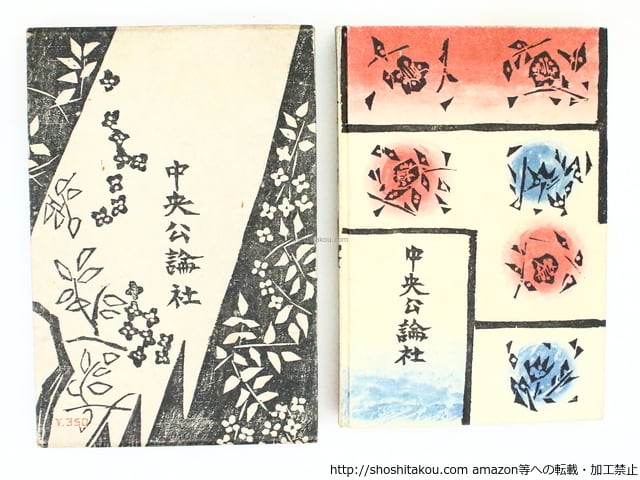 中央公論社
¥.350
中央公論社
http://shoshitakou.com amazon等への転載・加工禁止